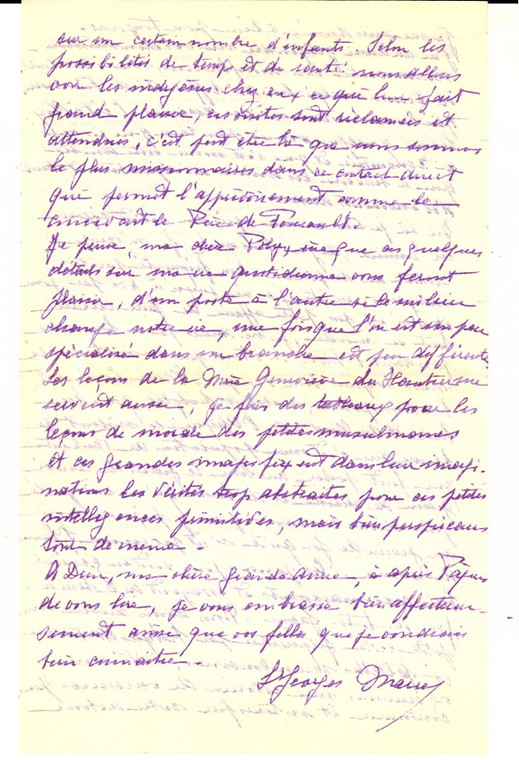 sur un certain nombre d'enfants. Selon les
possibilités de temps et de santé nous allons
voir les indigènes chez eux ce qui leur fait
grand plaisir, ces visites sont réclamées et
attendues, c'est peut être là que nous sommes
le plus missionnaires dans ce contact direct
que permet l'apprivoisement comme le
concevait le Père de Foucault.
Je pense, ma chère que ces quelques
détails sur ma vie quotidienne vous feront
plaisir, d'un poste à l'autre si le milieu
change notre vie, une fois que l'on est un peu
spécialisé dans sa branche est peu différente
Les leçons de la Mère Geneviève du
servent aussi, je fais des tableaux pour les
leçons de morale des petites musulmanes
et ces grandes images fixent dans leur imagi-
nations les vérités trop abstraites pour ces petites
intelligences primitives, mais bien perspicaces
tout de même.
A Dieu, ma chère grande Amie, à après Pâques
de vous lire, je vous embrasse bien affectueu-
sement ainsi que vos filles que je voudrais
bien connaître.
Sr Georges